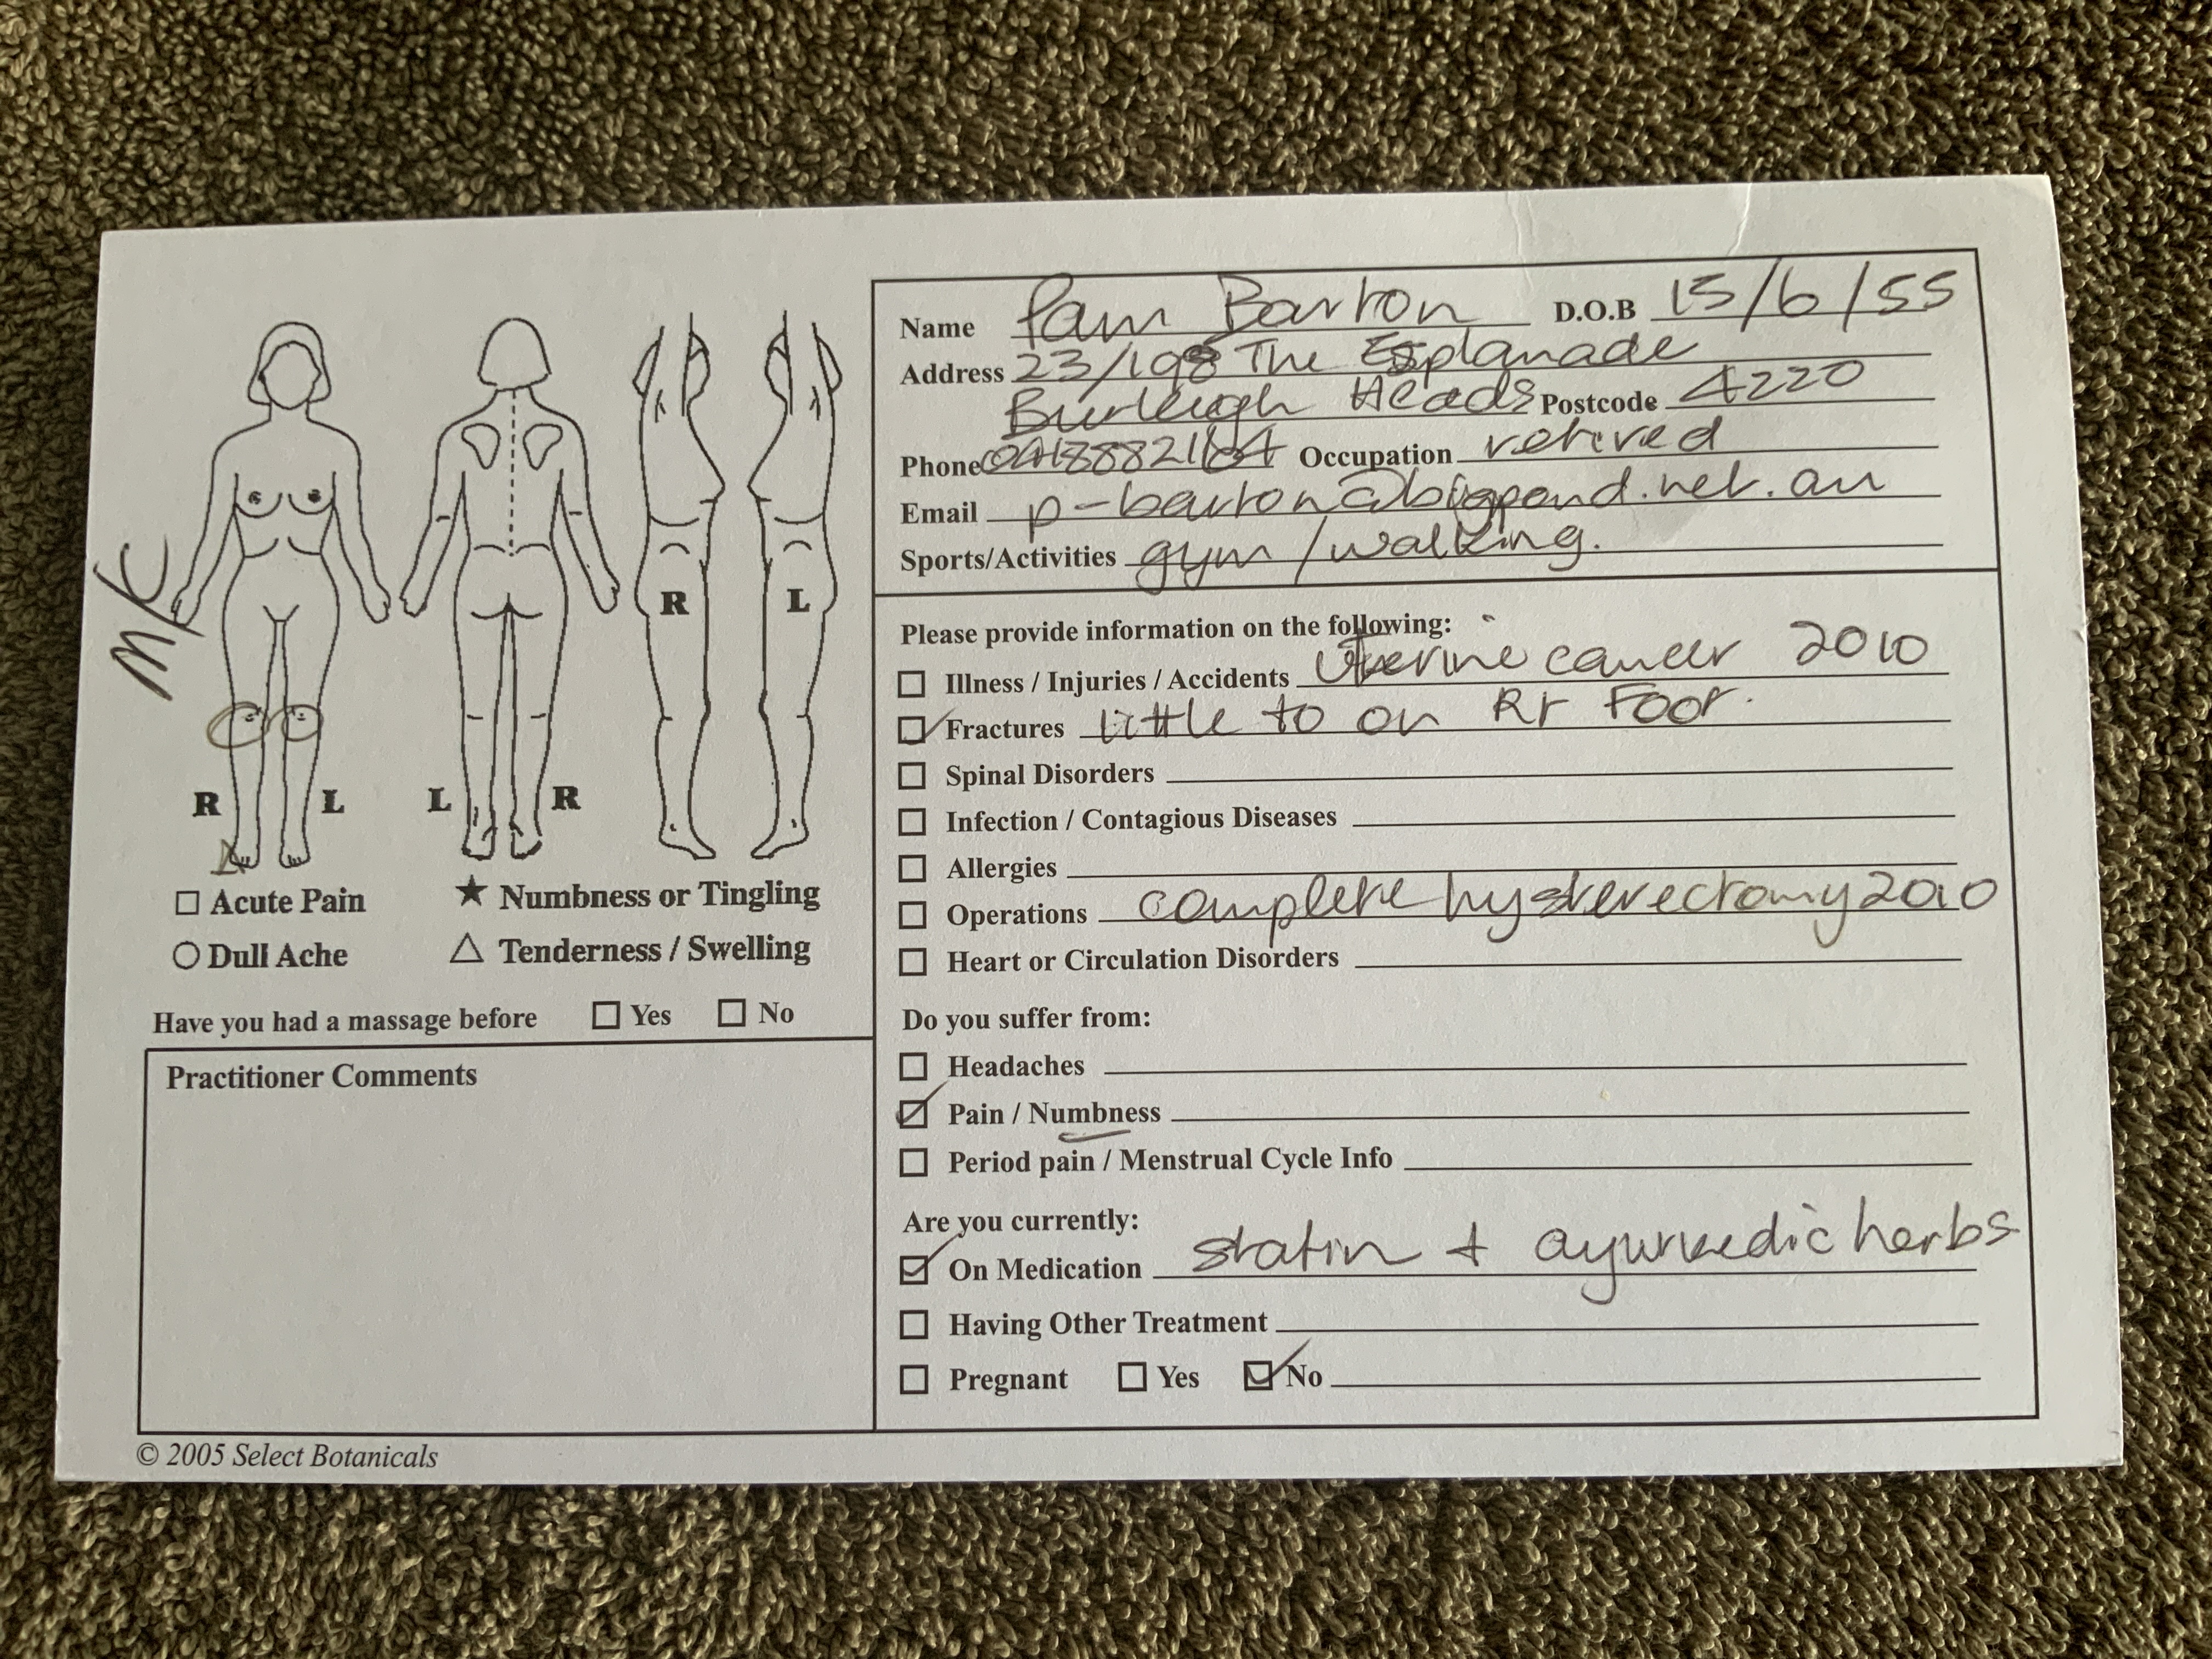 Name Pam Barton D.O.B 15/6/55
Address 23/198 The Esplanade
Burleigh Heads Postcode 4220
Phone Occupation retired
Email p-barton@bigpond.net.au
Sports/Activities gym / walking.
Please provide information on the following:
Illness / Injuries / Accidents Uterine cancer 2010
Fractures little to on Rt Foot.
Spinal Disorders
Infection / Contagious Diseases
Allergies
Operations complete hysterectomy 2010
Heart or Circulation Disorders
Do you suffer from:
Headaches
Pain / Numbness
Period pain / Menstrual Cycle Info
Are you currently:
On Medication statin + ayurvedic herbs
Having Other Treatment
Pregnant Yes No
MK
R L
R L L R
Acute Pain ★ Numbness or Tingling
Dull Ache △ Tenderness / Swelling
Have you had a massage before Yes No
Practitioner Comments
© 2005 Select Botanicals